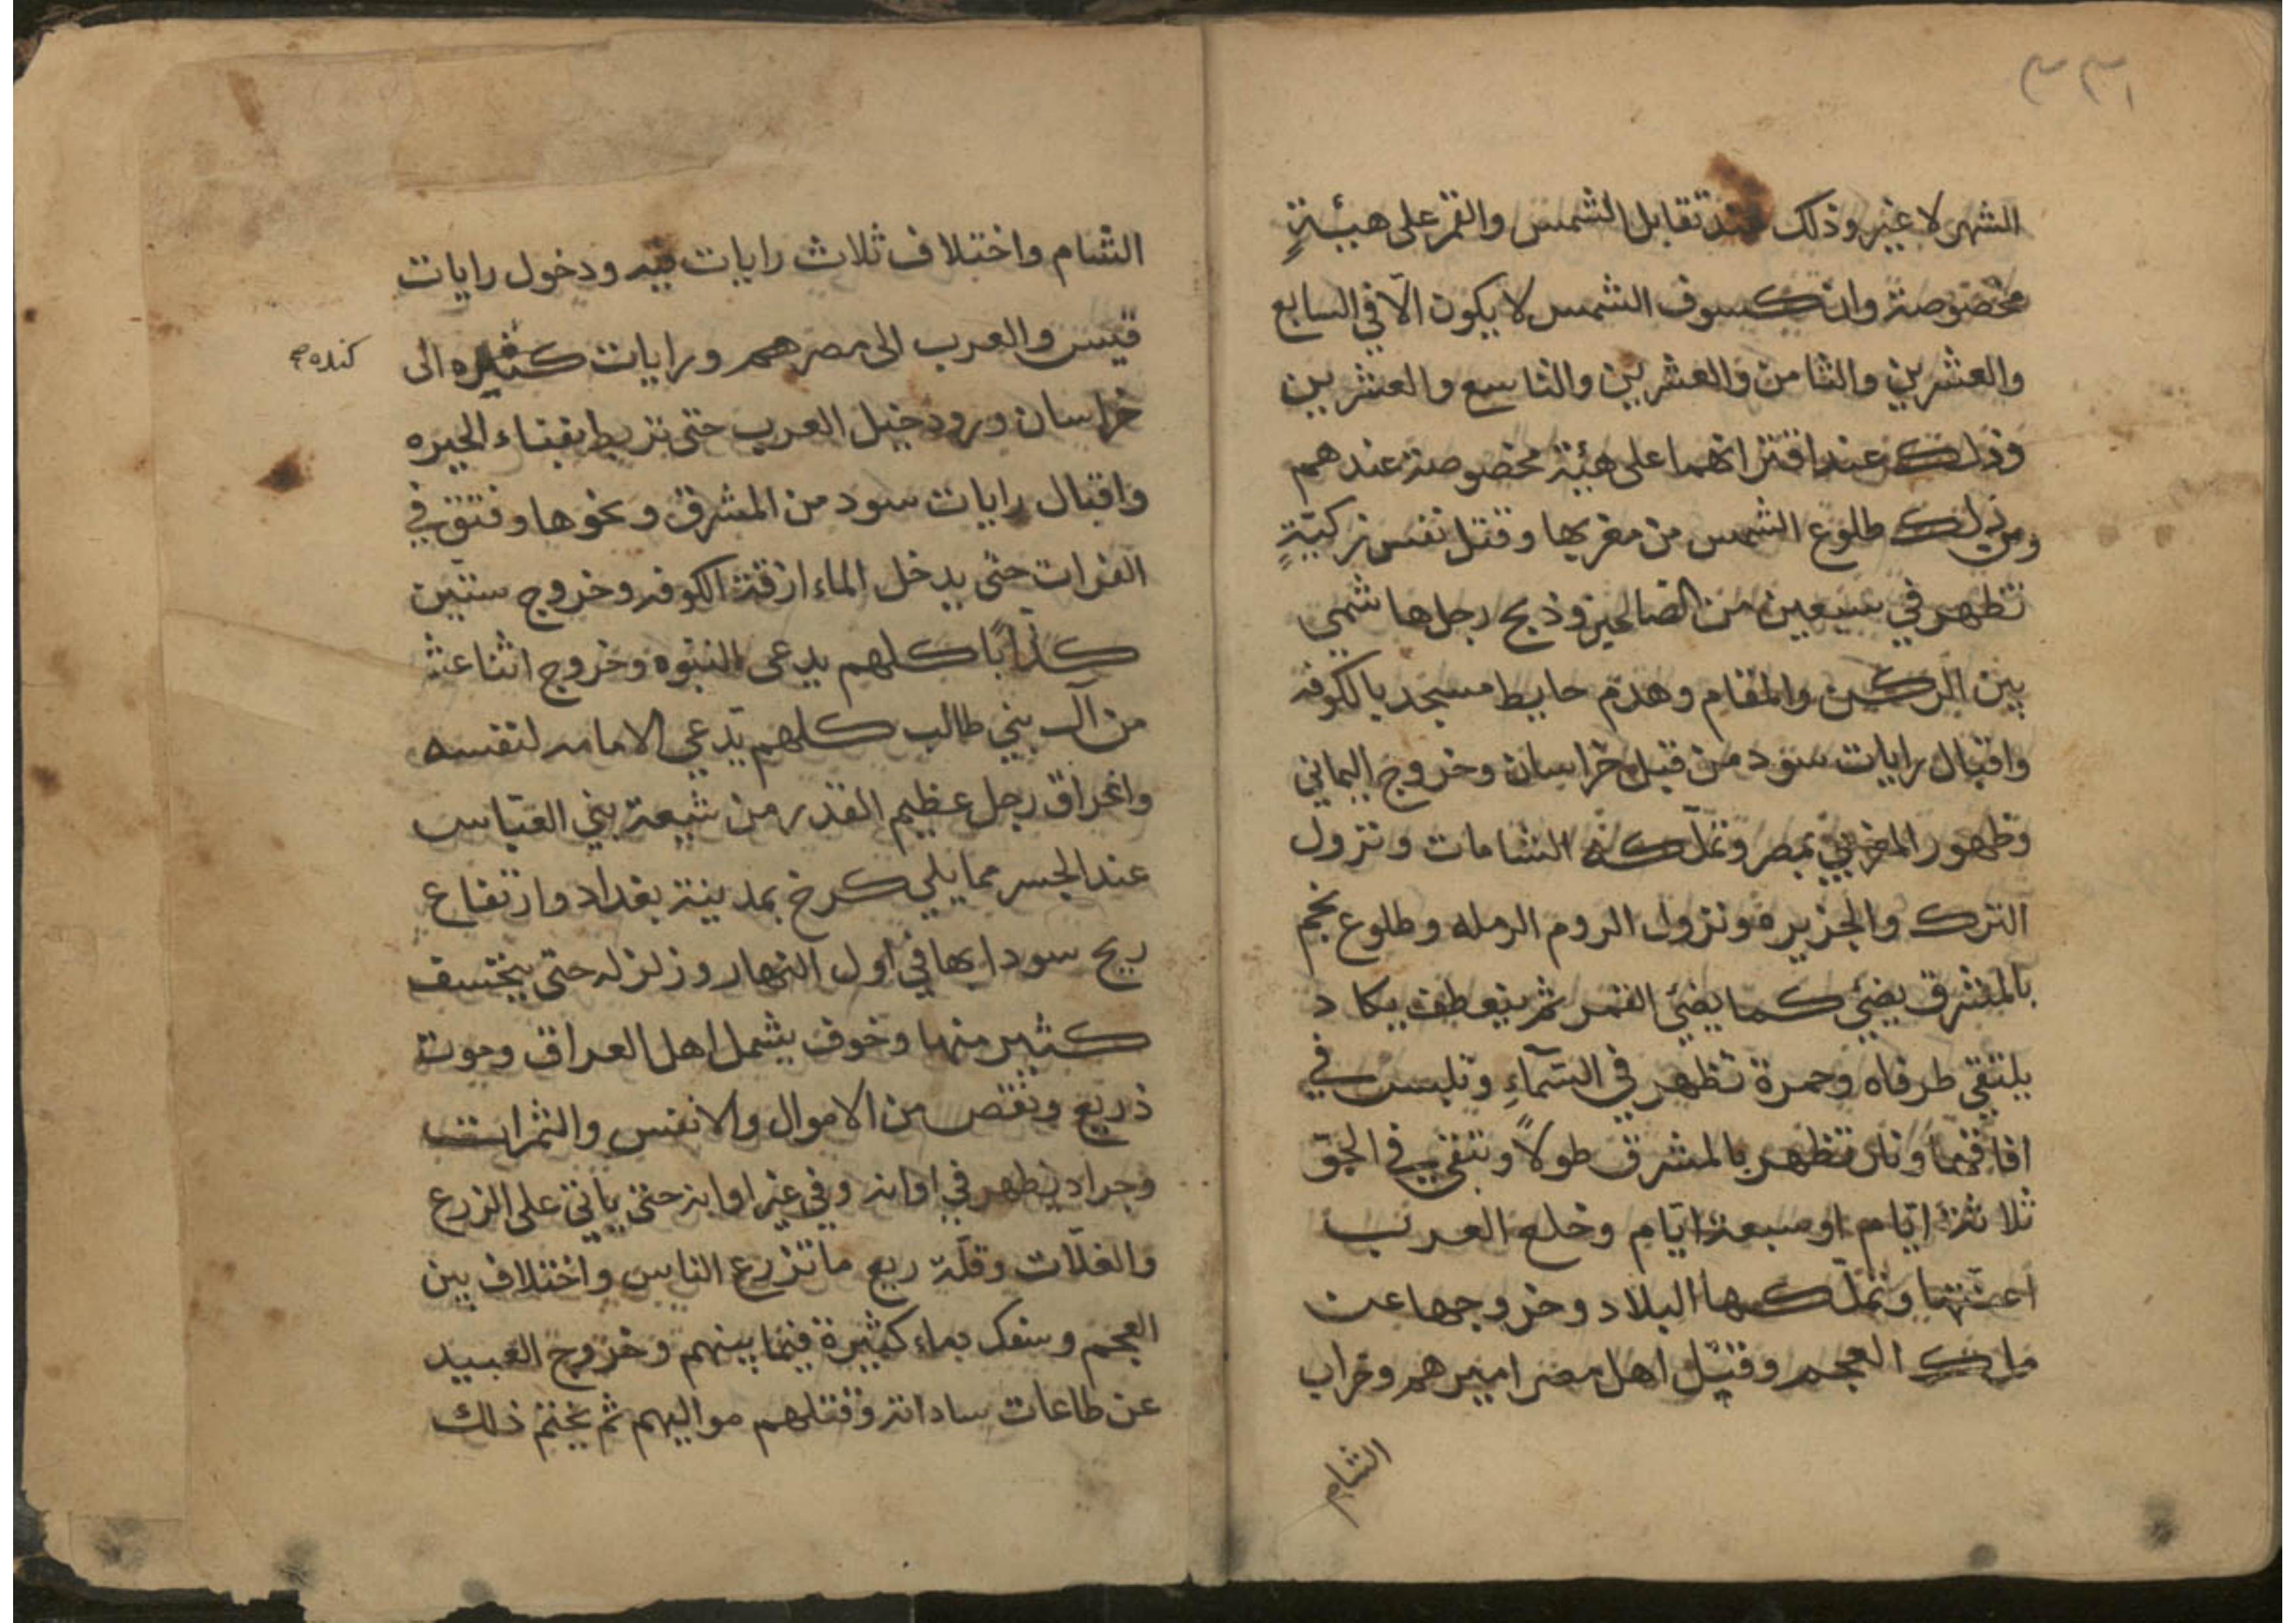 ٣٣١
الشهر لا غير وذلك عند تقابل الشمس والقمر على هيئةٍ
مخصوصة وان كسوف الشمس لا يكون الّا في السابع
والعشرين والثامن والعشرين والتاسع والعشرين
وذلك عند اقترانهما على هيئة مخصوصة عندهم
ومن ذلك طلوع الشمس من مغربها وقتل نفس زكيّةٍ
تظهر في سبعين من الصالحين وذبح رجل هاشمي
بين الركن والمقام وهدم حايط مسجد بالكوفه
واقبال رايات سود من قبل خراسان وخروج اليماني
وظهور المغربي بمصر وتملّكه الشامات ونزول
الترك والجزيره ونزول الروم الرمله وطلوع نجم
بالمشرق يضئ كما يضئ القمر ثم ينعطف يكاد
يلتقي طرفاه وحمرة تظهر في السّماءِ وتلبس في
افاقها ونار تظهر بالمشرق طولاً وتبقى في الجوّ
ثلاثة ايّام او سبعة ايّام وخلع العرب
اعنّتها وتملّكها البلاد وخروجها عن
ملك العجم وقتل اهل مصر اميرهم وخراب
الشام
الشام واختلاف ثلاث رايات فيه ودخول رايات
قيس والعرب الى مصرهم ورايات كثيره الى
كنده صح
خراسان وورود خيل العرب حتى تربط بفناء الحيره
واقبال رايات سود من المشرق ونحوها وفتق في
الفرات حتى يدخل الماء ازقة الكوفه وخروج ستين
كذّاباً كلهم يدعى النبوه وخروج اثنا عشر
من آل بني طالب كلهم يدّعي الامامه لنفسه
واغراق رجل عظيم القدر من شيعة بني العبّاس
عند الجسر مما يلي كرخ بمدينة بغداد وارتفاع
ريح سودا بها في اول النهار وزلزله حتى ينخسف
كثير منها وخوف يشمل اهل العراق وموت
ذريع ونقص من الاموال والانفس والثمرات
وجراد يظهر في اوانه وفي غير اوانه حتى ياتى على الزرع
والغلّات وقلّة ريع ما تزرع الناس واختلاف بين
العجم وسفك دماء كثيرة فيما بينهم وخروج العبيد
عن طاعات ساداته وقتلهم مواليهم ثم يختم ذلك